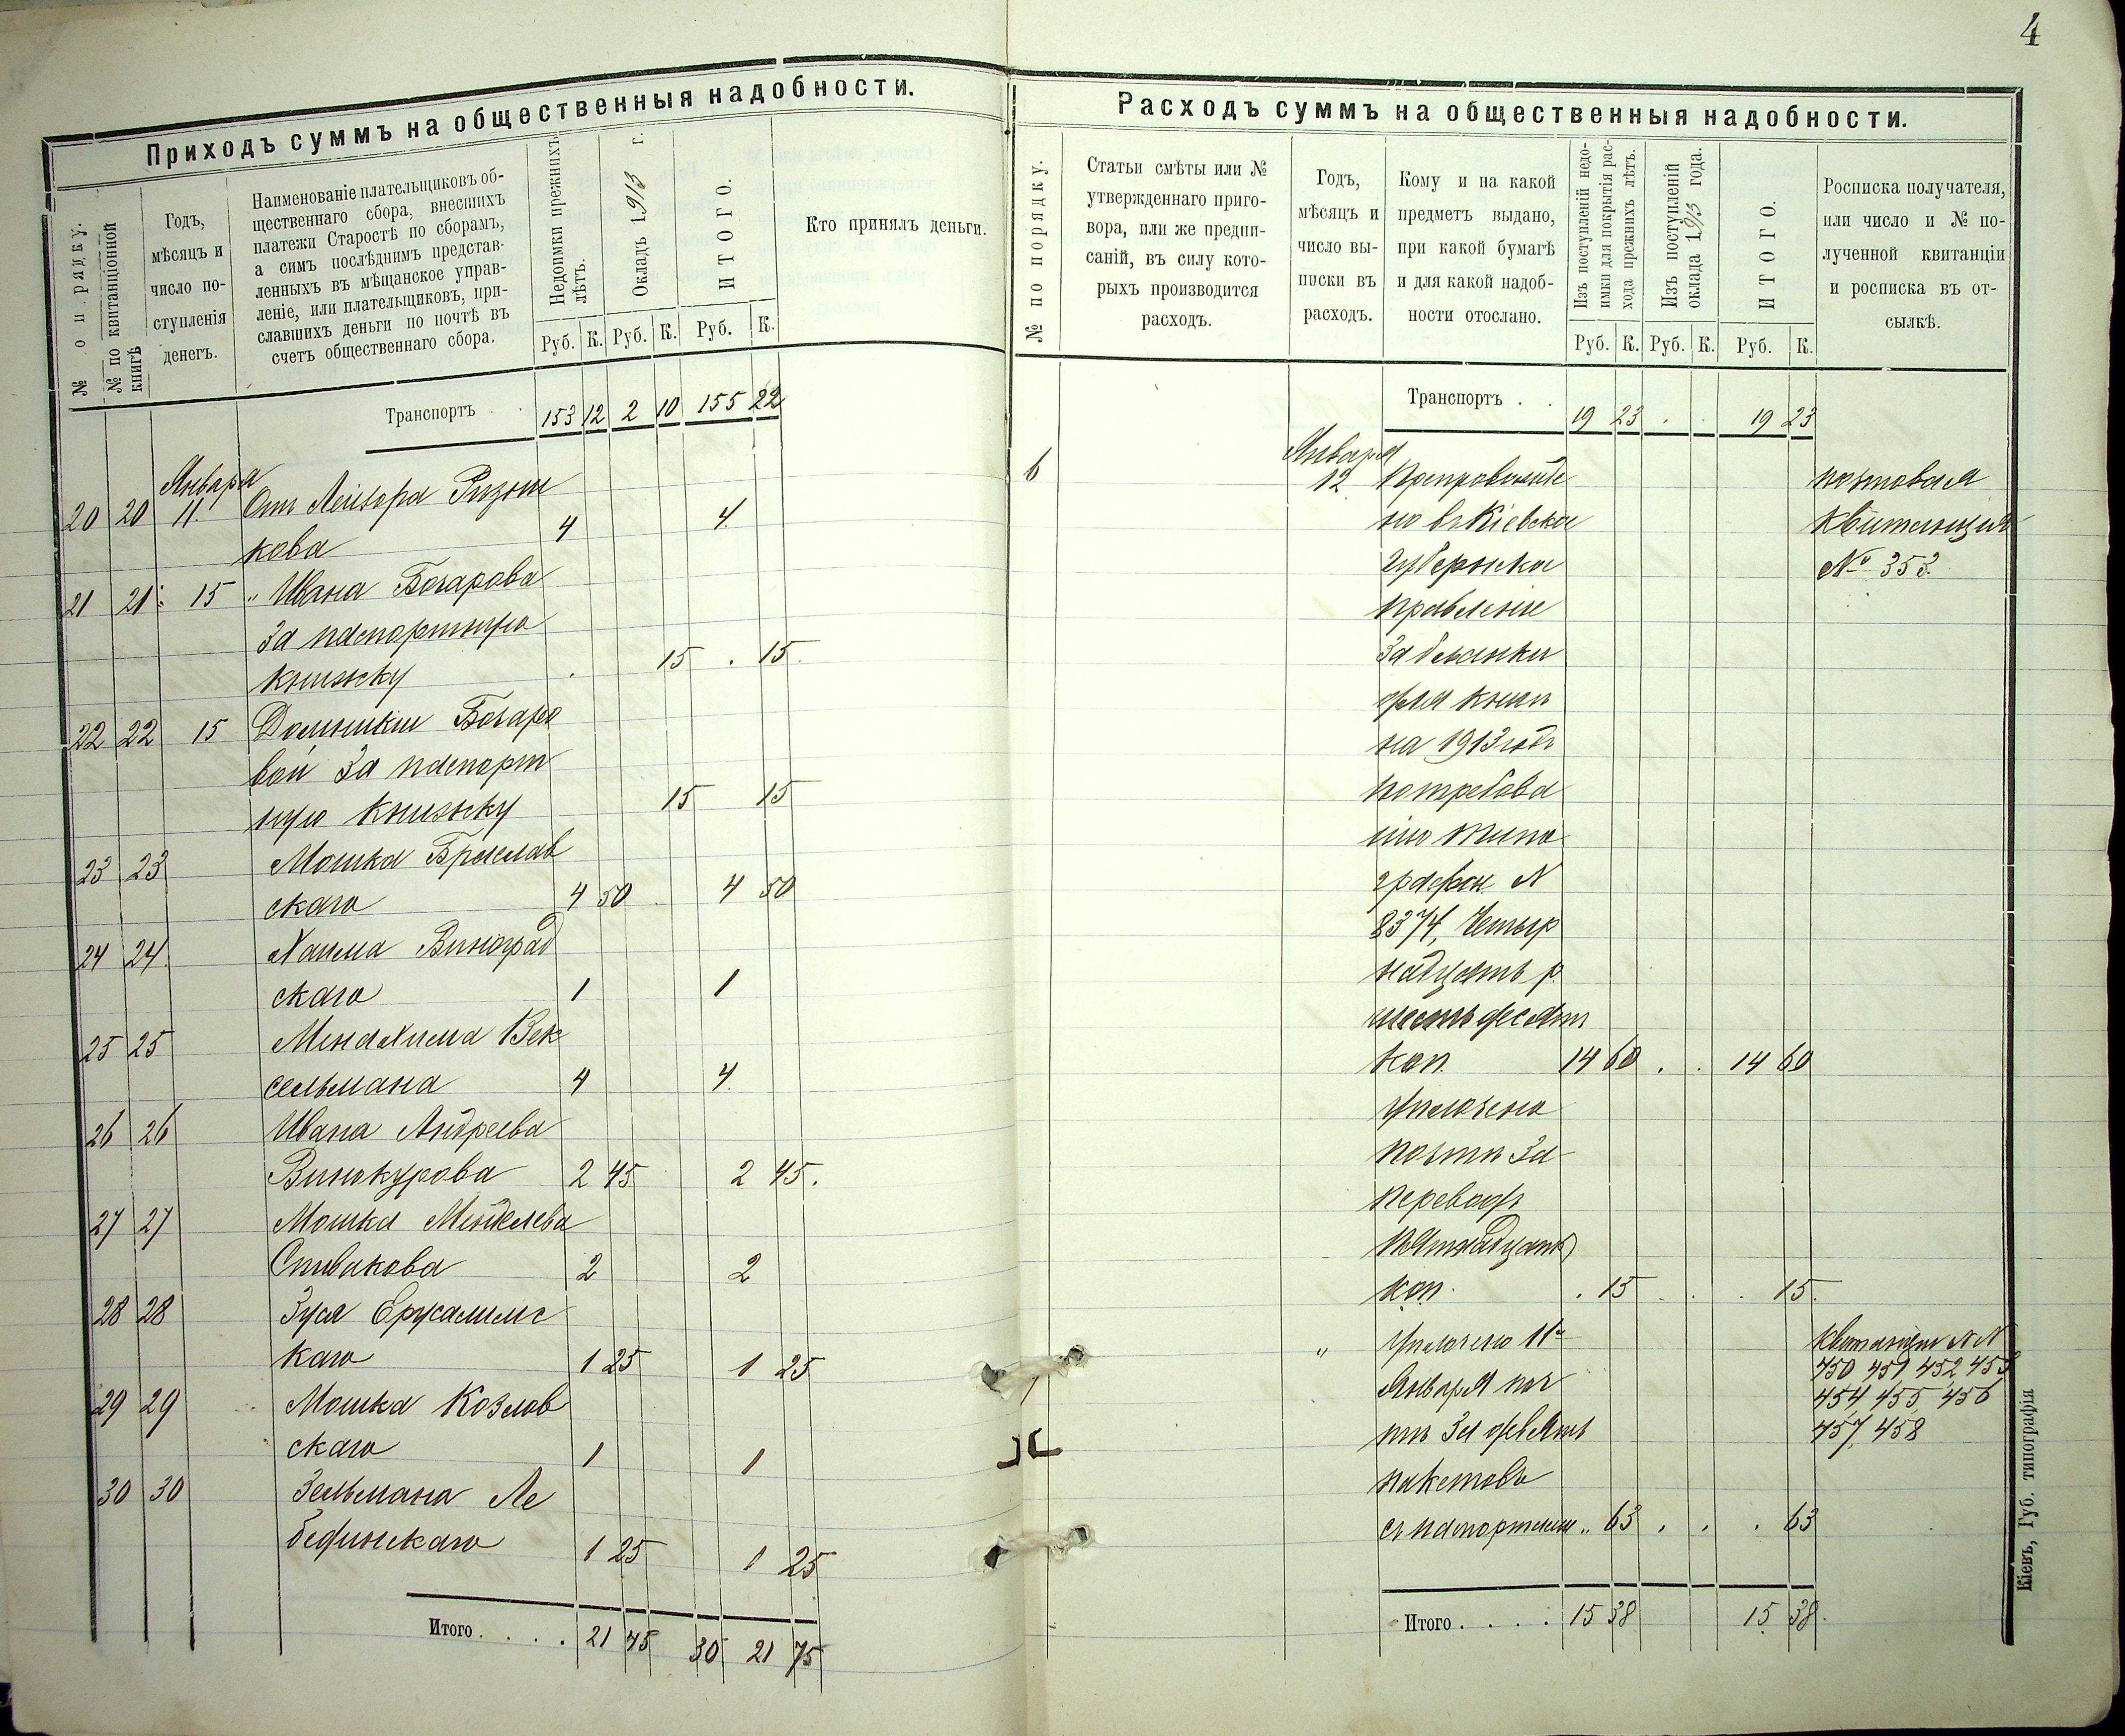 4
Приходъ суммъ на общественныя надобности.
№ по рядку.
№ по квитанціонной книгѣ
Годъ,
мѣсяцъ и
число по-
ступленія
денегъ.
Наименованіе плательщиковъ об-
щественнаго сбора, внесшихъ
платежи Старостѣ по сборамъ,
а симъ послѣднимъ представ-
ленныхъ въ мѣщанское управ-
леніе, или плательщиковъ, при-
славшихъ деньги по почтѣ въ
счетъ общественнаго сбора.
Недоимки прежнихъ
лѣтъ.
Окладъ 1913 г.
ИТОГО.
Кто принялъ деньги.
Руб. К. Руб. К. Руб. К.
Транспортъ 153 12 2 10 155 22
Января
20 20 11. Отъ Лейзора Ризни
кова 4 4
21 21 15 " Ивана Бочарова
за паспортную
книжку 15 . 15.
22 22 15 Домникіи Бочаро
вой за паспорт
ную книжку 15 15
23 23 Мошка Брацлав
скаго 4 50 4 50
24 24. Хаима Виноград
скаго 1 1
25 25 Менахима Век
сельмана 4 4.
26 26 Ивана Андреева
Винокурова 2 45 2 45.
27 27 Мошка Менделева
Спивакова 2 2
28 28 Зуся Ерусалимс
каго 1 25 1 25
29 29 Мошка Козлов
скаго 1 1
30 30 Зельмана Ле
бединскаго 1 25 1 25
Итого . . . . 21 45 30 21 75
Расходъ суммъ на общественныя надобности.
№ по порядку.
Статьи смѣты или №
утвержденнаго приго-
вора, или же предпи-
саній, въ силу кото-
рыхъ производится
расходъ.
Годъ,
мѣсяцъ и
число вы-
писки въ
расходъ.
Кому и на какой
предметъ выдано,
при какой бумагѣ
и для какой надоб-
ности отослано.
Изъ поступленій недо-
имки для покрытія рас-
хода прежнихъ лѣтъ.
Изъ поступленій
оклада 1913 года.
ИТОГО.
Росписка получателя,
или число и № по-
лученной квитанціи
и росписка въ от-
сылкѣ.
Руб. К. Руб. К. Руб. К.
Транспортъ . . 19 23 . . 19 23
6 Января
12 Препровожде почтовая
но въ Кіевское квитанція
губернское № 353.
правленіе
за бланки
для книгъ
на 1913 годъ
по требова
нію типо
графіи N
8374, Четыр
надцать р.
шестьдесятъ
коп. 14 60 . . 14 60
Уплочено
почтѣ за
переводъ
пятнадцать
коп. . 15 . . . 15.
" Уплочено 11го квитанціи NN
Января поч 450 451 452 453
тѣ за девять 454, 455, 456
пакетовъ 457, 458
съ паспортами " 63 . . . 63
Итого . . . . 15 38 15 38.
Кіевъ, Губ. типографія